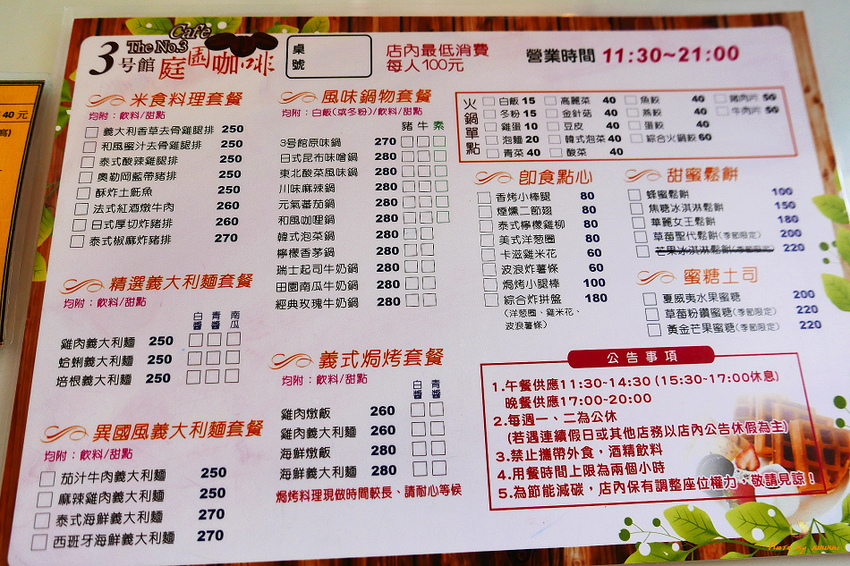 Cafe
The No.3
3號館 庭園咖啡
桌號
店內最低消費
每人100元
營業時間 11:30~21:00
40元
米食料理套餐
均附：飲料/甜點
義大利香草去骨雞腿排 250
和風蜜汁去骨雞腿排 250
泰式酸辣雞腿排 250
奧勒岡藍帶豬排 250
酥炸土魠魚 250
法式紅酒燉牛肉 260
日式厚切炸豬排 260
泰式椒麻炸豬排 270
精選義大利麵套餐
均附：飲料/甜點
白醬 青醬 南瓜
雞肉義大利麵 250
蛤蜊義大利麵 250
培根義大利麵 250
異國風義大利麵套餐
均附：飲料/甜點
茄汁牛肉義大利麵 250
麻辣雞肉義大利麵 250
泰式海鮮義大利麵 270
西班牙海鮮義大利麵 270
風味鍋物套餐
均附：白飯(或冬粉)/飲料/甜點
豬 牛 素
3號館原味鍋 270
日式昆布味噌鍋 280
東北酸菜風味鍋 280
川味麻辣鍋 280
元氣蕃茄鍋 280
和風咖哩鍋 280
韓式泡菜鍋 280
檸檬香茅鍋 280
瑞士起司牛奶鍋 280
田園南瓜牛奶鍋 280
經典玫瑰牛奶鍋 280
義式焗烤套餐
均附：飲料/甜點
白醬 青醬
雞肉燉飯 260
雞肉義大利麵 260
海鮮燉飯 280
海鮮義大利麵 280
焗烤料理現做時間較長、請耐心等候
火鍋單點
白飯 15 高麗菜 40 魚餃 40 豬肉片 50
冬粉 15 金針菇 40 燕餃 40 牛肉片 50
雞蛋 10 豆皮 40 蛋餃 40
泡麵 20 韓式泡菜 40 綜合火鍋餃 60
青菜 40 酸菜 40
即食點心
香烤小棒腿 80
煙燻二節翅 80
泰式檸檬雞柳 80
美式洋葱圈 80
卡滋雞米花 60
波浪炸薯條 60
焗烤小腿棒 100
綜合炸拼盤 180
(洋葱圈、雞米花、
波浪薯條)
甜蜜鬆餅
蜂蜜鬆餅 100
焦糖冰淇淋鬆餅 150
華麗女王鬆餅 180
草莓聖代鬆餅(季節限定) 200
芒果冰淇淋鬆餅(季節限定) 220
蜜糖土司
夏威夷水果蜜糖 200
草莓粉鑽蜜糖(季節限定) 220
黃金芒果蜜糖(季節限定) 220
公告事項
1.午餐供應11:30~14:30 (15:30~17:00休息)
晚餐供應17:00~20:00
2.每週一、二為公休
(若遇連續假日或其他店務以店內公告休假為主)
3.禁止攜帶外食，酒精飲料
4.用餐時間上限為兩個小時
5.為節能減碳，店內保有調整座位權力，敬請見諒！